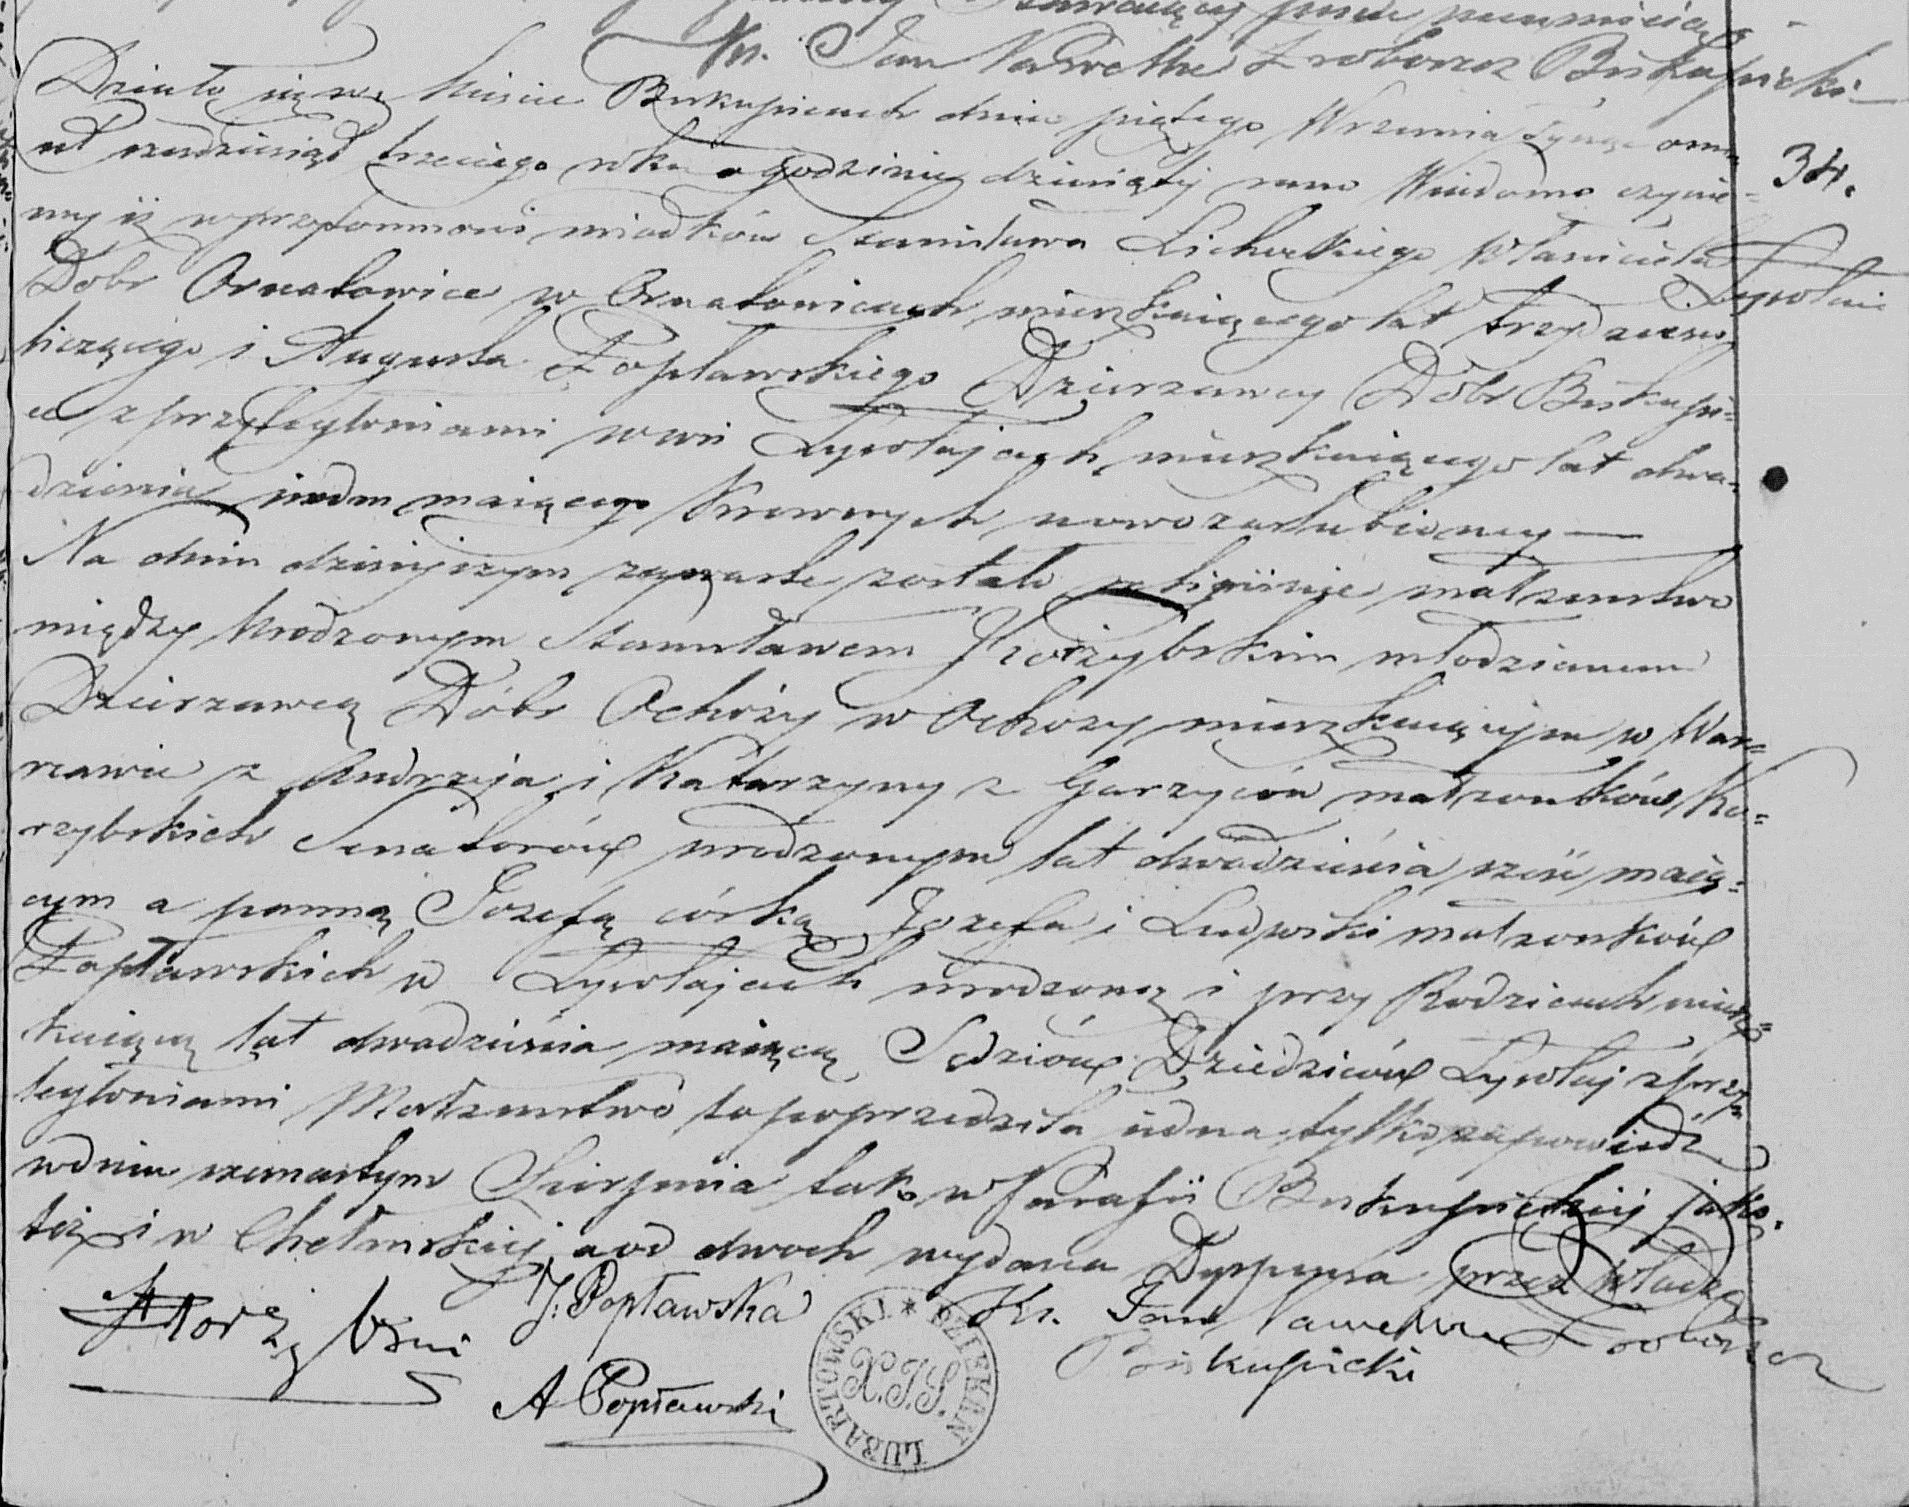 Stawaiący
Kr. Jan Proboszcz Biskupicki
Działo się w Mieście Biskupicach dnia piątego Września Tysiąc osm-
set trzeciego roku o godzinie dziewiątej rano Wiadomo czynie-
my iż w przytomności świadków Stanisława Lichockiego Właściciela
Dóbr Ornatowice w Ornatowicach mieszkaiącego lat trzydzieści
liczącego i Augusta Popławskiego Dzierzawcy Dóbr Biskupi-
ce z przyległoniami w wsi Łysołajach mieszkaiącego lat dwa-
dzieścia siedm maiącego Krewnych nowozaslubioney —
Na dniu dzisiejszym zawarte zostało religijnie małżeństwo
między Urodzonym Stanisławem Korzybskim młodzianem
Dzierzawcą Dóbr Ochoży w Ochozy mieszkaiącym w War-
szawie z Andrzeja i Katarzyny z małżonków Ko-
rzybskich Senatorów urodzonym lat dwadzieścia sześć maią-
cym a panną Józefą córką Jozefa i Ludwiki małzonków
Popławskich w Łysołajach urodzoną i przy Rodzicach miesz-
kaiącą lat dwadzieścia maiącą Sędziów Dziedziców Łysołaj z przy-
ległoniami Małzeństwo to poprzedziła iedna tylko zapowiedź
w dniu Sierpnia tak w Parafii Biskupickiej jako
też i w Chełmskiej, a od dwoch wydana Dyspensa przez Władzę
34.
Łysołaie
SKorzybski
J. Popławska
A Popławski
Kr. Jan Proboszcz
Biskupicki
DZIEKAN LUBARTOWSKI
X.J.S.